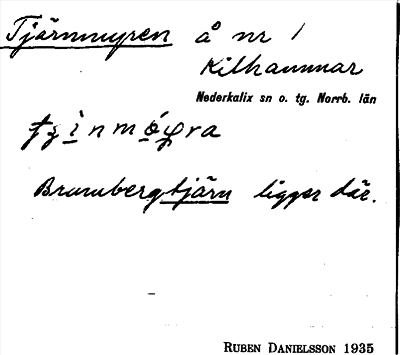 Tjärnmyren å nr 1
Kilhammar
Nederkalix sn o. tg. Norrb. län
Brambergtjärn ligger där.
RUBEN DANIELSSON 1935